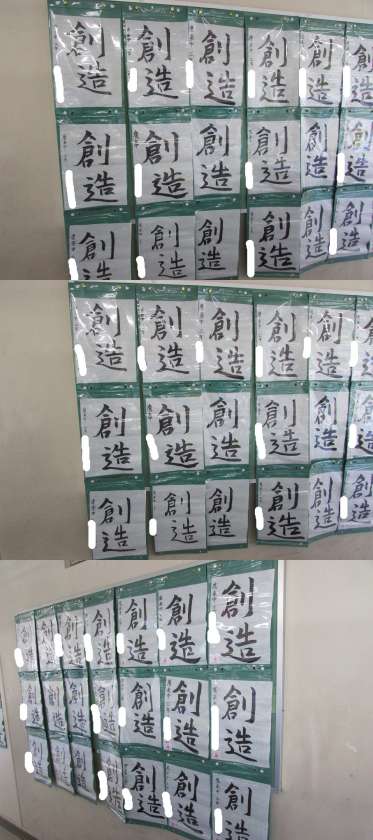 創造 創造 創造 創造 創造 創造
創造 創造 創造 創造 創造 創造
創造 創造 創造 創造 創造 創造
創造 創造 創造 創造 創造 創造
創造 創造 創造 創造 創造 創造
創造 創造 創造 創造 創造 創造
創造 創造 創造 創造 創造 創造 創造
創造 創造 創造 創造 創造 創造 創造
創造 創造 創造 創造 創造 創造 創造